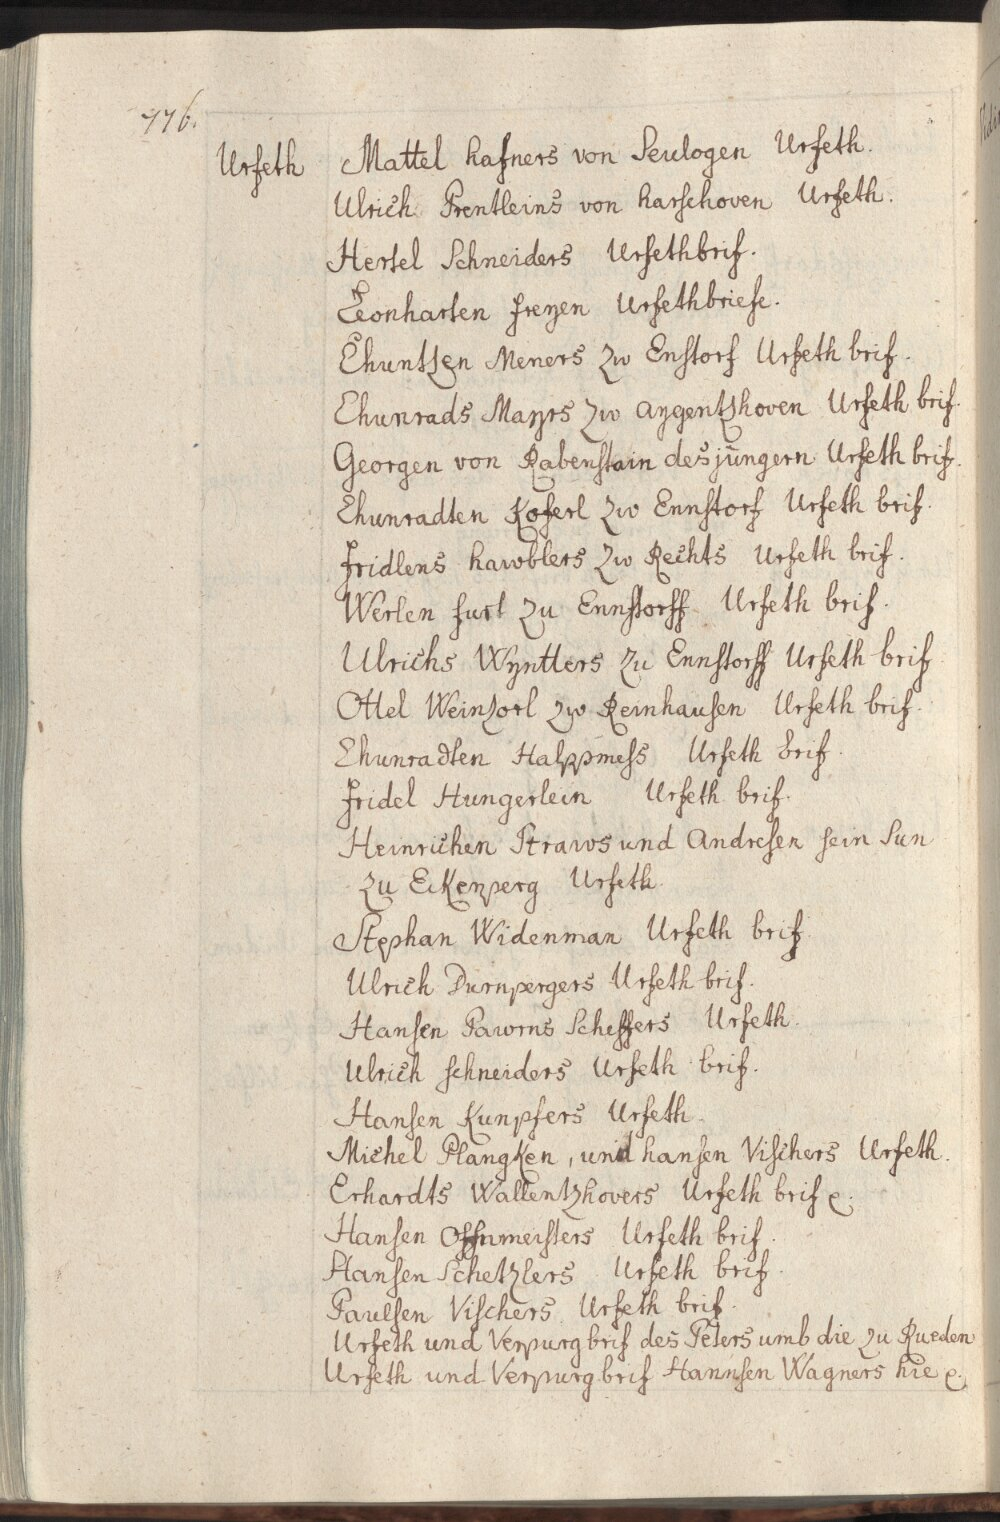 176.
Urfeth Mattel hafners von Seulogen Urfeth.
Ulrich Prentleins von harschoven Urfeth.
Hertel Schneiders Urfethbrif.
Leonharten freyen Urfethbriefe.
Chuntzen Meners zw Enstorf Urfeth brif.
Chunrads Mayrs zw aygentzhoven Urfeth brif.
Georgen von Rabenstain des jüngern Urfeth brif.
Chunradten Koferl zw Ennstorf Urfeth brif.
fridlens hawblers zw Rechts Urfeth brif.
Werlen furl zu Ennstorff Urfeth brif.
Ulrichs Wyntters zu Ennstorff Urfeth brif
Ottel Weinzorl zw Reinhausen Urfeth brif.
Chunradten Halppmess Urfeth brif.
fridel Hungerlein Urfeth brif.
Heinrichen Straws und Andresen sein Sun
zu Eckenperg Urfeth.
Stephan Widenman Urfeth brif.
Ulrich Durnpergers Urfeth brif.
Hansen Pawrns Scheffers Urfeth.
Ulrich schneiders Urfeth brif.
Hansen Kunpfers Urfeth.
Michel Plangken, und hansen Vischers Urfeth.
Erhardts Wallentzhovers Urfeth brif
Hansen Offnmeisters Urfeth brif.
Hansen Schetzlers Urfeth brif.
Paulsen Vischers Urfeth brif.
Urfeth und Verpurg brif des Peters umb die zu Rueden
Urfeth und Verpurg brif Hannsen Wagners hie